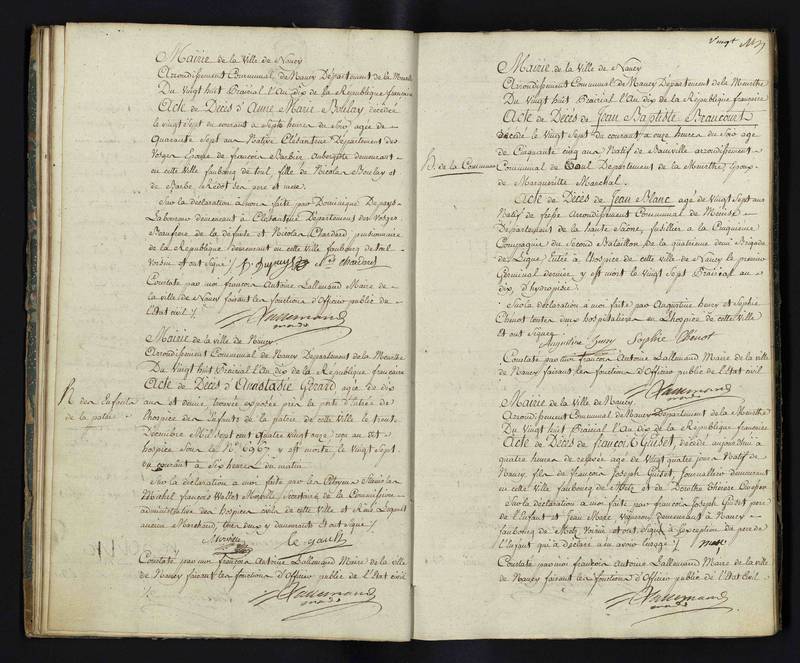 Mairie de la Ville de Nancy
Arrondissement Communal de Nancy Département de la Meurthe
Du vingt huit Prairial l'An dix de la République française
Acte de Décès d'Anne Marie Boulay décédée
le vingt sept du courant à sept heures du soir agée de
quarante sept ans Native Département des
Vosges Epouse de françois Barbier Aubergiste demeurant
en cette Ville faubourg de toul, fille de Nicolas Boulay et
de Barbe ses pere et mere.
Sur la déclaration à moi faite par Dominique
Laboureur demeurant à Département des Vosges
Beaufrere de la défunte et Nicolas Chardard pensionnaire
de la République demeurant en cette ville faubourg de toul
Voisin et ont signé /.
Constaté par moi françois Antoine Lallemand Maire de
la ville de Nancy faisant les fonctions d'Officier public de
l'Etat civil /.
Lallemand
maire
Mairie de la ville de Nancy
Arrondissement Communal de Nancy Département de la Meurthe
Du vingt huit Prairial l'An dix de la République française
H. des Enfants
de la patrie
Acte de Décès d'Anastasie Gérard agée de dix
ans et demie, trouvée exposée près la porte d'entrée de
l'hospice des Enfants de la patrie de cette Ville le trente
Décembre Mil sept cent quatre vingt onze, reçue au dit
hospice sous le No. 6967 y est morte le vingt sept
du courant à six heures du matin.
Sur la déclaration à moi faite par les Citoyens Stanislas
Michel françois Vallet Merville, Secretaire de la Commission
administrative des hospices civils de cette ville et René
ancien Marchand, tous deux y demeurants et ont signé /
le gault
Constaté par moi françois Antoine Lallemand Maire de la ville
de Nancy faisant les fonctions d'Officier public de l'Etat civil
/.
Lallemand
maire
Vingt
Mairie de la Ville de Nancy
Arrondissement Communal de Nancy Département de la Meurthe
Du vingt huit Prairial l'An dix de la République française
Acte de Décès de Jean Baptiste Beaucourt
décédé le vingt sept du courant à onze heures du soir agé
de Cinquante cinq ans Natif de Bainville arrondissement
Communal de Toul Département de la Meurthe, Epoux
de Marguerite Marchal.
H. de la Commune
Acte de Décès de Jean Blanc agé de vingt sept ans
Natif de arrondissement Communal de
Département de la haute Saone, fusillier à la Cinquieme
Compagnie du Second Bataillon de la quatrieme demi Brigade
de Ligne, Entré à l'hospice de cette ville de Nancy le premier
Germinal dernier, y est mort le vingt sept Prairial an
dix, d'hydropisie.
Sur la déclaration à moi faite par Augustine henry et Sophie
Chénot toutes deux hospitalieres en l'hospice de cette ville
Et ont signé
Augustine henry Sophie Chénot
Constaté par moi françois Antoine Lallemand Maire de la ville
de Nancy faisant les fonctions d'Officier public de l'Etat civil
Lallemand
maire
Mairie de la Ville de Nancy
Arrondissement Communal de Nancy Département de la Meurthe
Du vingt huit Prairial l'An dix de la République française
Acte de Décès de françois Guiset décédé aujourd'hui à
quatre heures de relevée agé de vingt quatre jours Natif de
Nancy, fils de françois Joseph Guiset Journallier demeurant
en cette ville faubourg de Metz et de Dorothée Thérese
Sur la déclaration à moi faite par françois Joseph Guiset pere
de l'Enfant et Jean Morée Vigneron demeurant à Nancy
faubourg de Metz, Voisin et ont signé à l'exception du pere de
l'Enfant qui a déclaré n'en avoir l'usage /.
Constaté par moi françois Antoine Lallemand Maire de la ville
de Nancy faisant les fonctions d'Officier public de l'Etat civil
Lallemand
maire